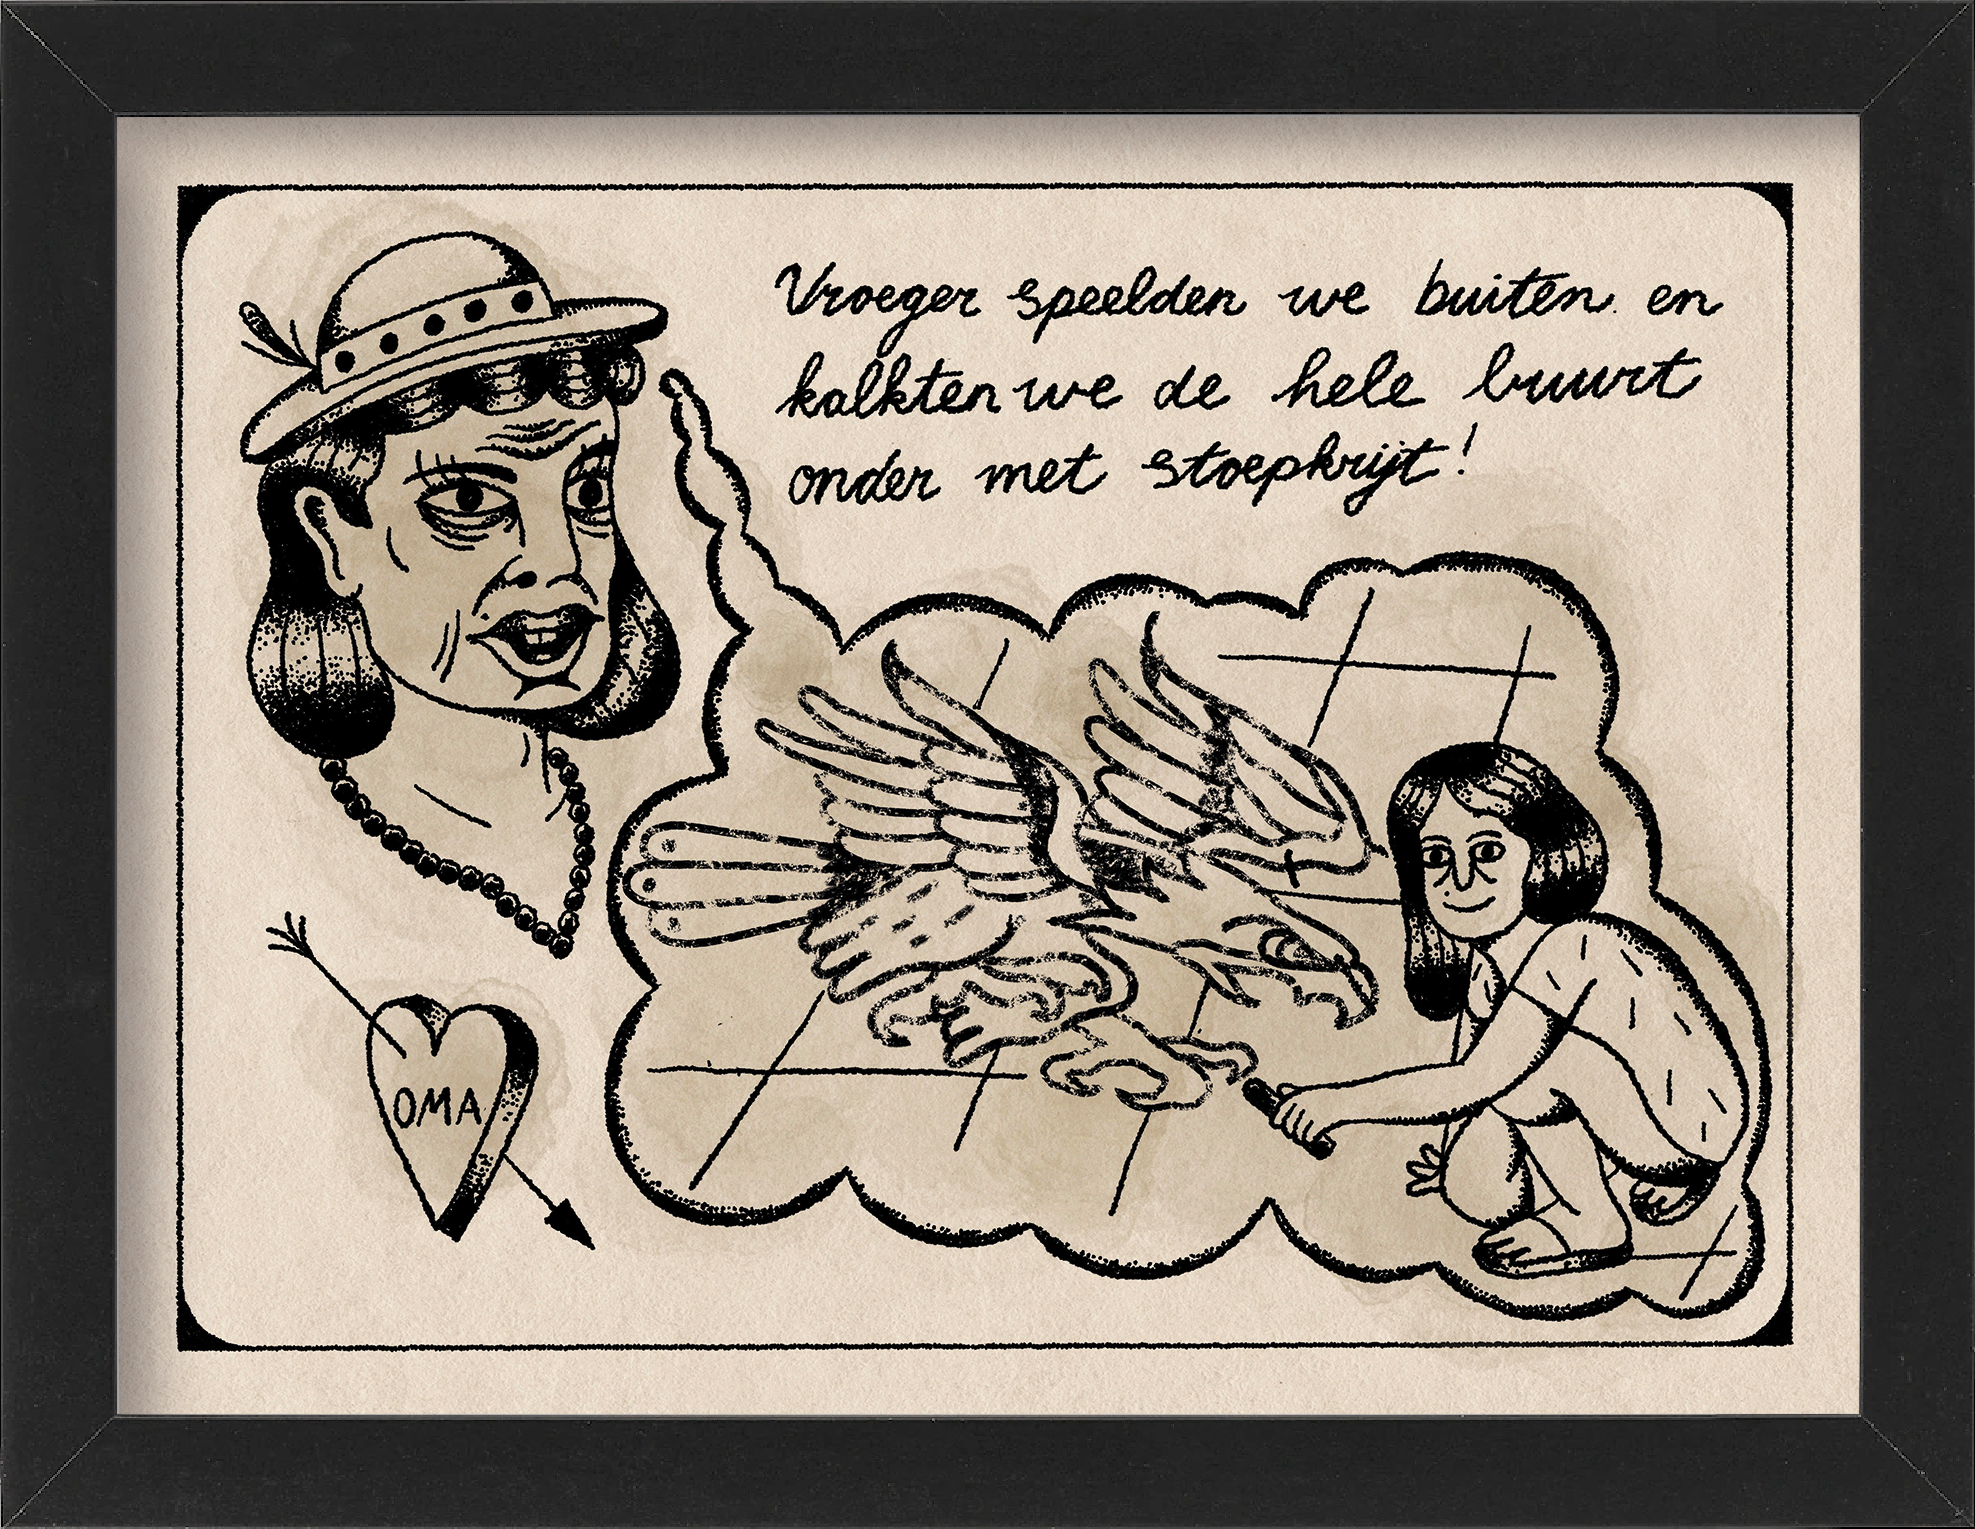 Vroeger speelden we buiten en
kalkten we de hele buurt
onder met stoepkrijt!
OMA